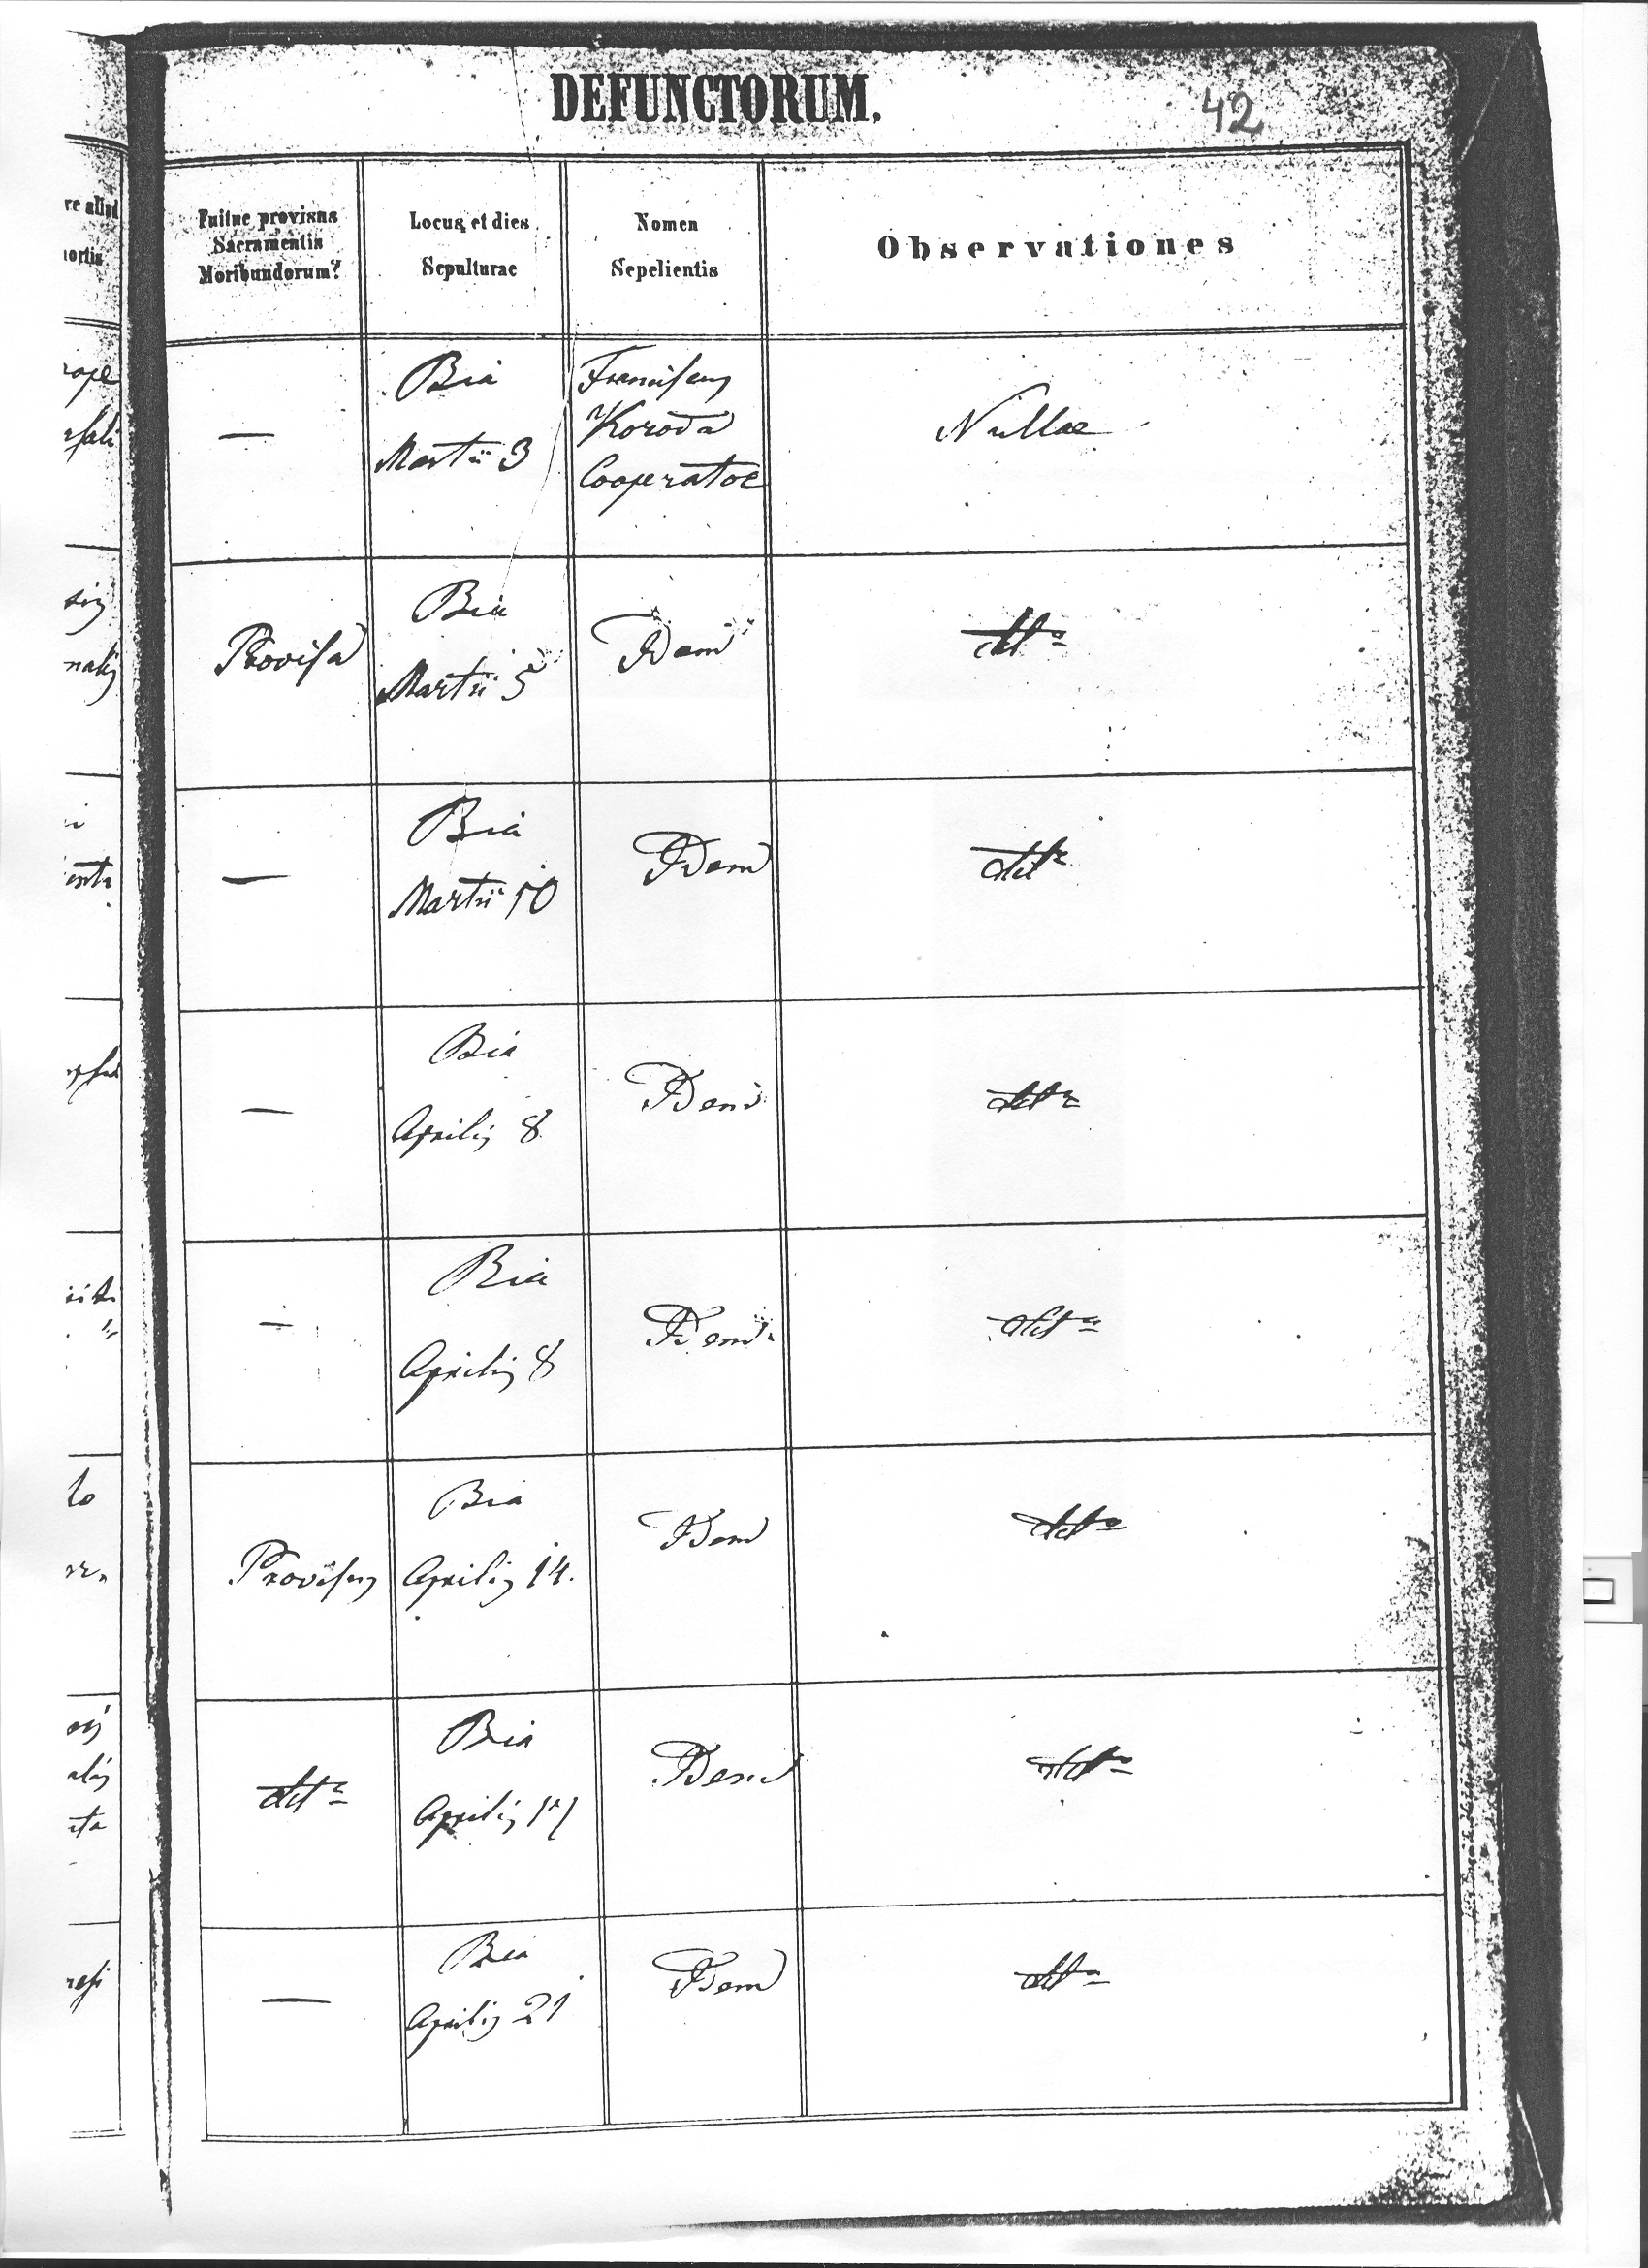 DEFUNCTORUM.
42
Fuitne provisus
Sacramentis
Moribundorum?
Locus et dies
Sepulturae
Nomen
Sepelientis
Observationes
—
Bia
Martii 3
Franciscus
Koroda
Cooperator
Nullae
Provisa
Bia
Martii 5
Idem
detto
—
Bia
Martii 10
Idem
detto
—
Bia
Aprilis 8
Idem
detto
—
Bia
Aprilis 8
Idem
detto
Provisus
Bia
Aprilis 14.
Idem
detto
detto
Bia
Aprilis 17
Idem
detto
—
Bia
Aprilis 21
Idem
detto